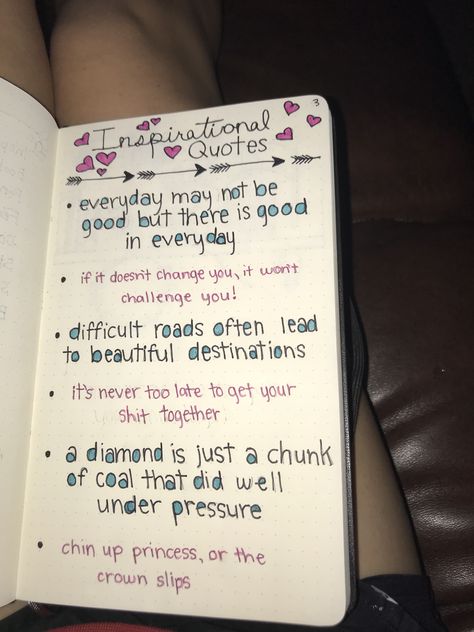 3
Inspirational
Quotes
• everyday may not be
good but there is good
in everyday
• if it doesn't change you, it won't
challenge you!
• difficult roads often lead
to beautiful destinations
• it's never too late to get your
shit together
• a diamond is just a chunk
of coal that did well
under pressure
• chin up princess, or the
crown slips